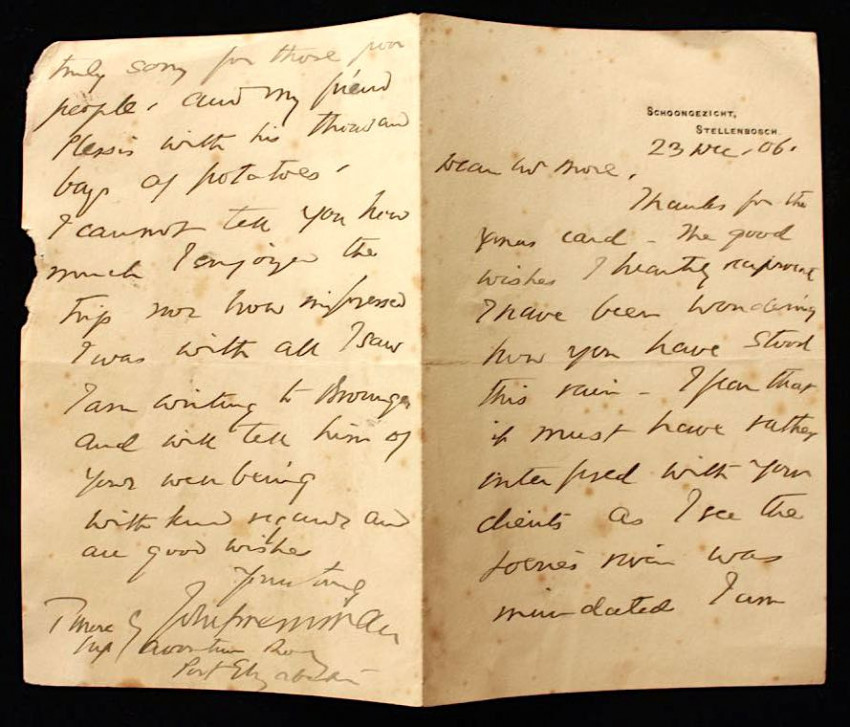 SCHOONGEZICHT,
STELLENBOSCH.
23 Dec. 06.
Dear Mr More,
Thanks for the
Xmas card - The good
wishes I heartily reciprocate
I have been wondering
how you have stood
this rain - I fear that
it must have rather
interfered with your
clients as I see the
river was
inundated I am
truly sorry for those poor
people, and my friend
Plessis with his thousand
bags of potatoes,
I cannot tell you how
much I enjoyed the
trip nor how impressed
I was with all I saw
I am writing to
and will tell him of
your well being
With kind regards and
all good wishes
Yrs truly
John X Merriman
T More Esq
Port Elizabeth